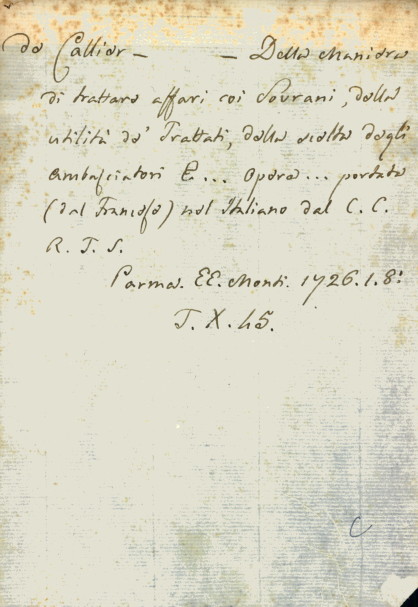 de Callier - - Della Maniera
di trattare affari coi Sovrani, della
utilità de' Trattati, della scelta degli
Ambasciatori E... Opera... portata
(dal Francese) nel Italiano dal C. C.
R. T. S.
Parma. EE. Monti. 1726. 1. 8:
T. X. 45.
C